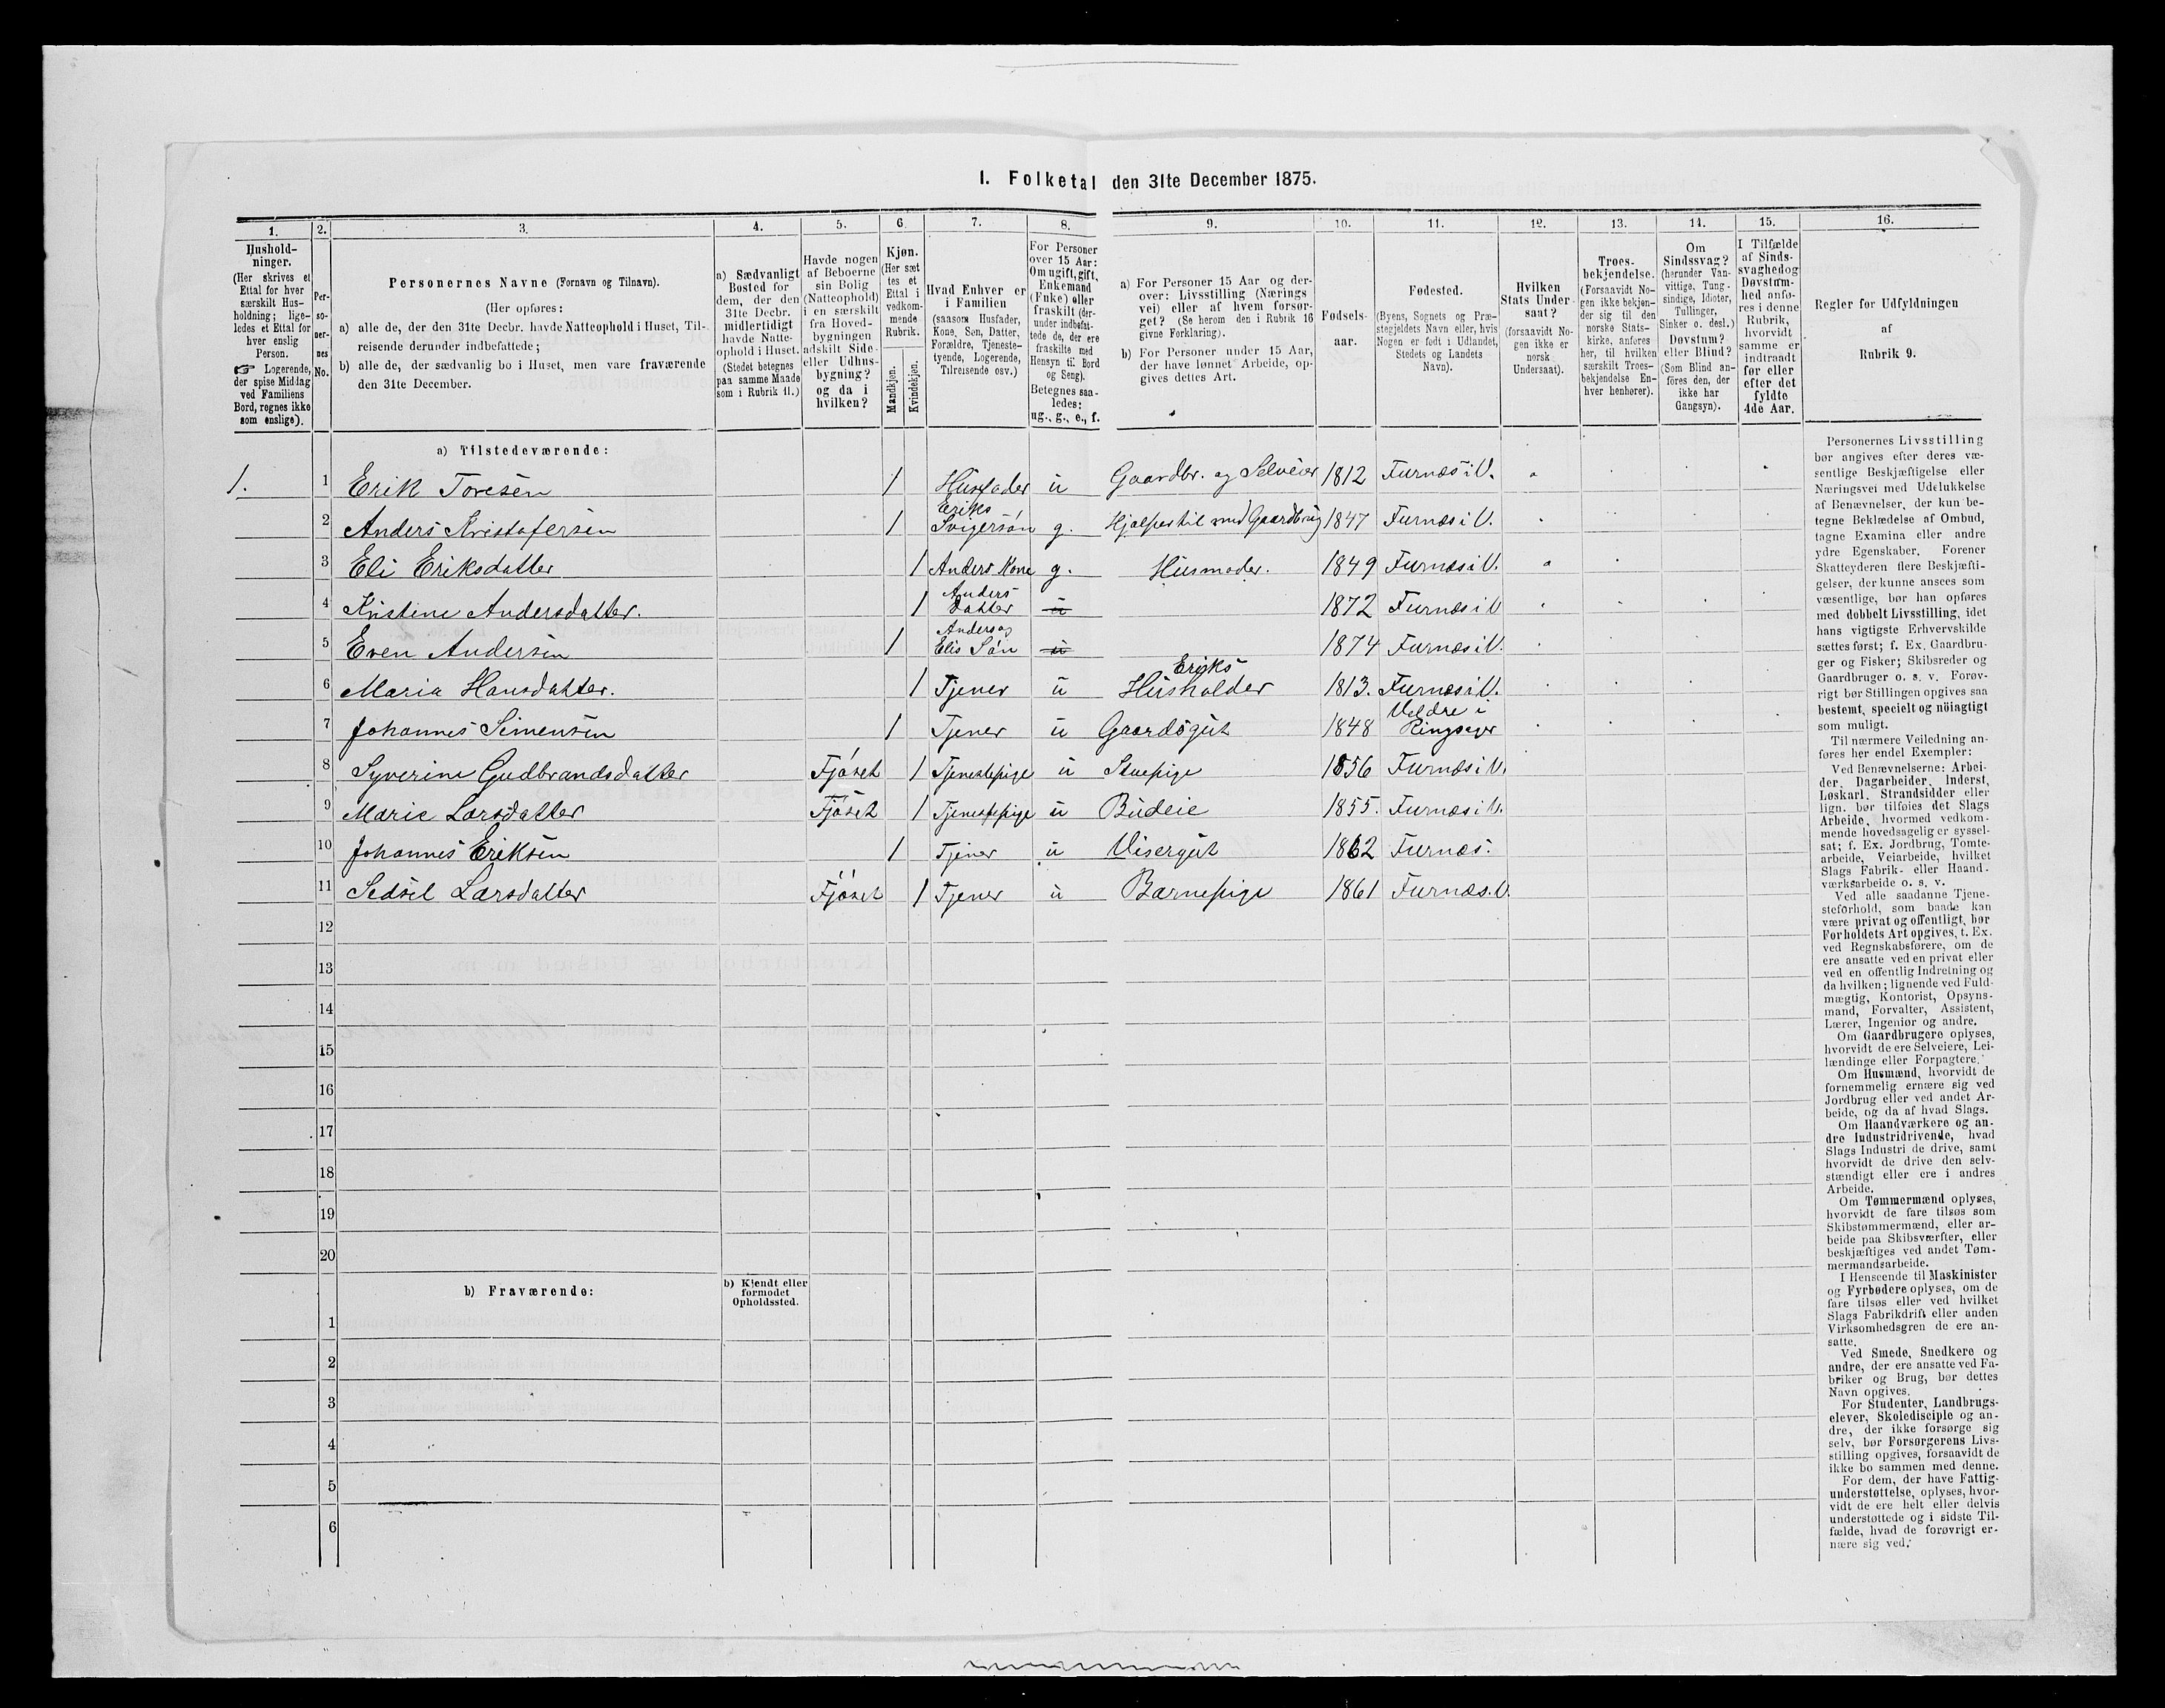 I. Folketal den 31te December 1875.
1. 2. 3. 4. 5. 6. 7. 8. 9. 10. 11. 12. 13. 14. 15. 16.
Hushold-
ninger.
(Her skrives et
Ettal for hver
særskilt Hus-
holdning; lige-
ledes et Ettal for
hver enslig
Person.
☞ Logerende,
der spise Middag
ved Familiens
Bord, regnes ikke
som enslige).
Per-
so-
ner-
nes
No.
Personernes Navne (Fornavn og Tilnavn).
(Her opføres:
a) alle de, der den 31te Decbr. havde Natteophold i Huset, Til-
reisende derunder indbefattede;
b) alle de, der sædvanlig bo i Huset, men vare fraværende
den 31te December.
a) Sædvanligt
Bosted for
dem, der den
31te Decbr.
midlertidigt
havde Natte-
ophold i Huset.
(Stedet betegnes
paa samme Maade
som i Rubrik 11.)
Havde nogen
af Beboerne
sin Bolig
(Natteophold)
i en særskilt
fra Hoved-
bygningen
adskilt Side-
eller Udhus-
bygning?
og da i
hvilken?
Kjøn.
(Her sæt
tes et
Ettal i
vedkom-
mende
Rubrik.
Mandkjøn.
Kvindekjøn.
Hvad Enhver er
i Familien
(saasom Husfader,
Kone, Søn, Datter,
Forældre, Tjeneste-
tyende, Logerende,
Tilreisende osv.)
For Personer
over 15 Aar:
Om ugift, gift,
Enkemand
(Enke) eller
fraskilt (der-
under indbefat-
tede de, der ere
fraskilte med
Hensyn til Bord
og Seng).
Betegnes saa-
ledes:
ug., g., e., f.
a) For Personer 15 Aar og der-
over: Livsstilling (Nærings
vei) eller af hvem forsør-
get? (Se herom den i Rubrik 16
givne Forklaring).
b) For Personer under 15 Aar,
der have lønnet Arbeide, op-
gives dettes Art.
Fødsels-
aar.
Fødested.
(Byens, Sognets og Præ-
stegjeldets Navn eller, hvis
Nogen er født i Udlandet,
Stedets og Landets
Navn).
Hvilken
Stats Under-
saat?
(forsaavidt No-
gen ikke er
norsk
Undersaat).
Troes-
bekjendelse.
(Forsaavidt No-
gen ikke bekjen-
der sig til den
norske Stats-
kirke, anføres
her, til hvilken
særskilt Troes-
bekjendelse En-
hver henhører).
Om
Sindssvag?
(herunder Van-
vittige, Tung-
sindige, Idioter,
Tullinger,
Sinker o. desl.)
Døvstum?
eller Blind?
(Som Blind an-
føres den, der
ikke har
Gangsyn).
I Tilfælde
af Sinds-
svaghed og
Døvstum-
hed anfø-
res i denne
Rubrik,
hvorvidt
samme er
indtraadt
før eller
efter det
fyldte
4de Aar.
Regler for Udfyldningen
af
Rubrik 9.
a) Tilstedeværende:
1. 1 Erik Toresen 1 Husfader u Gaardbr. og Selveier 1812 Furnæs i V.
2 Anders Kristofersen 1 Eriks Svigersøn g. Hjælper til med Gaardbrug 1847 Furnæs i V.
3 Eli Eriksdatter 1 Anders Kone g. Husmoder. 1849 Furnæs i V.
4 Kristine Andersdatter. 1 Anders Datter u 1872 Furnæs i V
5 Even Andersen 1 Anders og Elis Søn u 1874 Furnæs i V.
6 Maria Hansdatter. 1 Tjener u Eriks Husholder 1813. Furnæs i V.
7 Johannes Simensen 1 Tjener u Gaardsgut 1848 Veldre i Ringsager
8 Syverine Gudbrandsdatter Fjøset 1 Tjenestepige u Stuepige 1856 Furnæs i V.
9 Marie Larsdatter Fjøset 1 Tjenestepige u Budeie 1855. Furnæs i V.
10 Johannes Eriksen 1 Tjener u Visergut 1862 Furnæs.
11 Sedsel Larsdatter Fjøset 1 Tjener u Barnepige 1861 Furnæs. V.
12
13
14
15
16
17
18
19
20
b) Fraværende:
b) Kjendt eller
formodet
Opholdssted.
1
2
3
4
5
6
Personernes Livsstilling
bør angives efter deres væ-
sentlige Beskjæftigelse eller
Næringsvei med Udelukkelse
af Benævnelser, der kun be-
tegne Beklædelse af Ombud,
tagne Examina eller andre
ydre Egenskaber. Forener
Skatteyderen flere Beskjæfti-
gelser, der kunne ansees som
væsentlige, bør han opføres
med dobbelt Livsstilling, idet
hans vigtigste Erhvervskilde
sættes først; f. Ex. Gaardbru-
ger og Fisker; Skibsreder og
Gaardbruger o. s. v. Forøv-
rigt bør Stillingen opgives saa
bestemt, specielt og nöiagtigt
som muligt.
Til nærmere Veiledning an-
føres her endel Exempler:
Ved Benævnelserne: Arbei-
der, Dagarbeider, Inderst,
Løskarl, Strandsidder eller
lign. bør tilføies det Slags
Arbeide, hvormed vedkom-
mende hovedsagelig er syssel-
sat; f. Ex. Jordbrug, Tomte-
arbeide, Veiarbeide, hvilket
Slags Fabrik- eller Haand-
værksarbeide o. s. v.
Ved alle saadanne Tjene-
steforhold, som baade kan
være privat og offentligt, bør
Forholdets Art opgives, t. Ex.
ved Regnskabsførere, om de
ere ansatte ved en privat eller
ved en offentlig Indretning og
da hvilken; lignende ved Fuld-
mægtig, Kontorist, Opsyns-
mand, Forvalter, Assistent,
Lærer, Ingeniør og andre.
Om Gaardbrugere oplyses,
hvorvidt de ere Selveiere, Lei-
lændinge eller Forpagtere.
Om Husmænd, hvorvidt de
fornemmelig ernære sig ved
Jordbrug eller ved andet Ar-
beide, og da af hvad Slags.
Om Haandværkere og an-
dre Industridrivende, hvad
Slags Industri de drive, samt
hvorvidt de drive den selv-
stændigt eller ere i andres
Arbeide.
Om Tømmermænd oplyses,
hvorvidt de fare tilsøs som
Skibstømmermænd, eller ar-
beide paa Skibsværfter, eller
beskjæftiges ved andet Tøm-
mermandsarbeide.
I Henseende til Maskinister
og Fyrbødere oplyses, om de
fare tilsøs eller ved hvilket
Slags Fabrikdrift eller anden
Virksomhedsgren de ere an-
satte.
Ved Smede, Snedkere og
andre, der ere ansatte ved Fa-
briker og Brug, bør dettes
Navn opgives.
For Studenter, Landbrugs-
elever, Skoledisciple og an-
dre, der ikke forsørge sig
selv, bør Forsørgerens Livs-
stilling opgives, forsaavidt de
ikke bo sammen med denne.
For dem, der have Fattig-
understøttelse, oplyses, hvor-
vidt de ere helt eller delvis
understøttede og i sidste Til-
fælde, hvad de forøvrigt er-
nære sig ved.